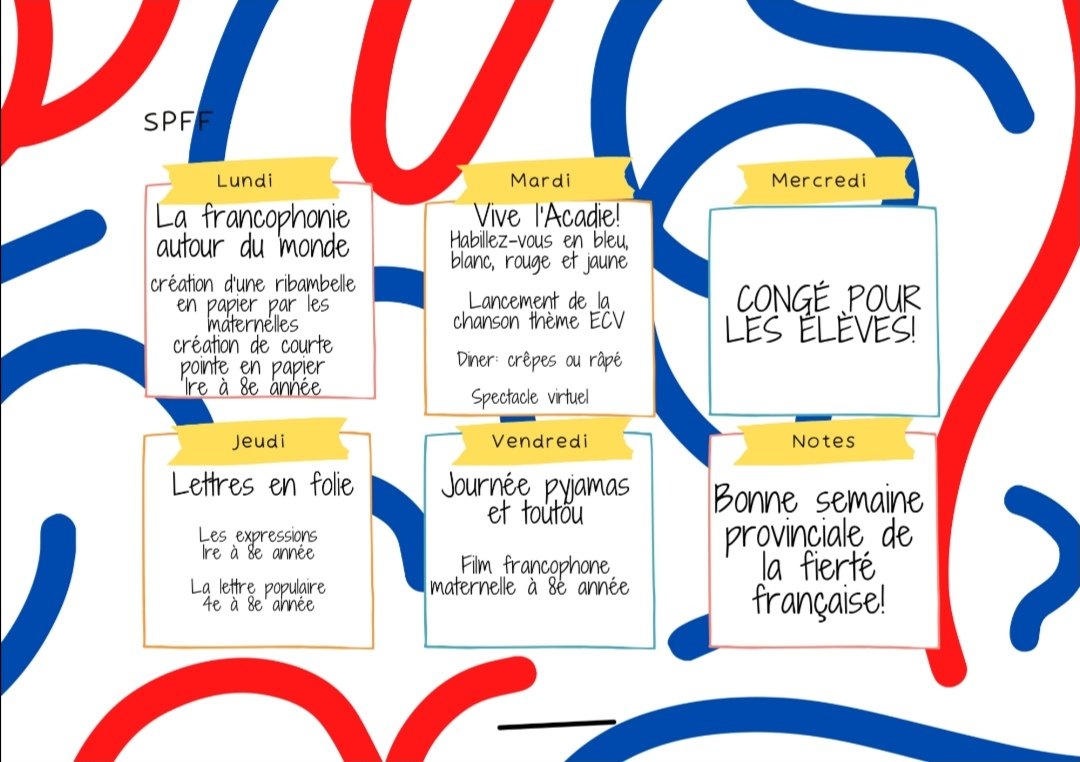 SPFF
Lundi
La francophonie
autour du monde
création d'une ribambelle
en papier par les
maternelles
création de courte
pointe en papier
1re à 8e année
Mardi
Vive l'Acadie!
Habillez-vous en bleu,
blanc, rouge et jaune
Lancement de la
chanson thème ECV
Diner: crêpes ou râpé
Spectacle virtuel
Mercredi
CONGÉ POUR
LES ÉLÈVES!
Jeudi
Lettres en folie
Les expressions
1re à 8e année
La lettre populaire
4e à 8e année
Vendredi
Journée pyjamas
et toutou
Film francophone
maternelle à 8e année
Notes
Bonne semaine
provinciale de
la fierté
française!